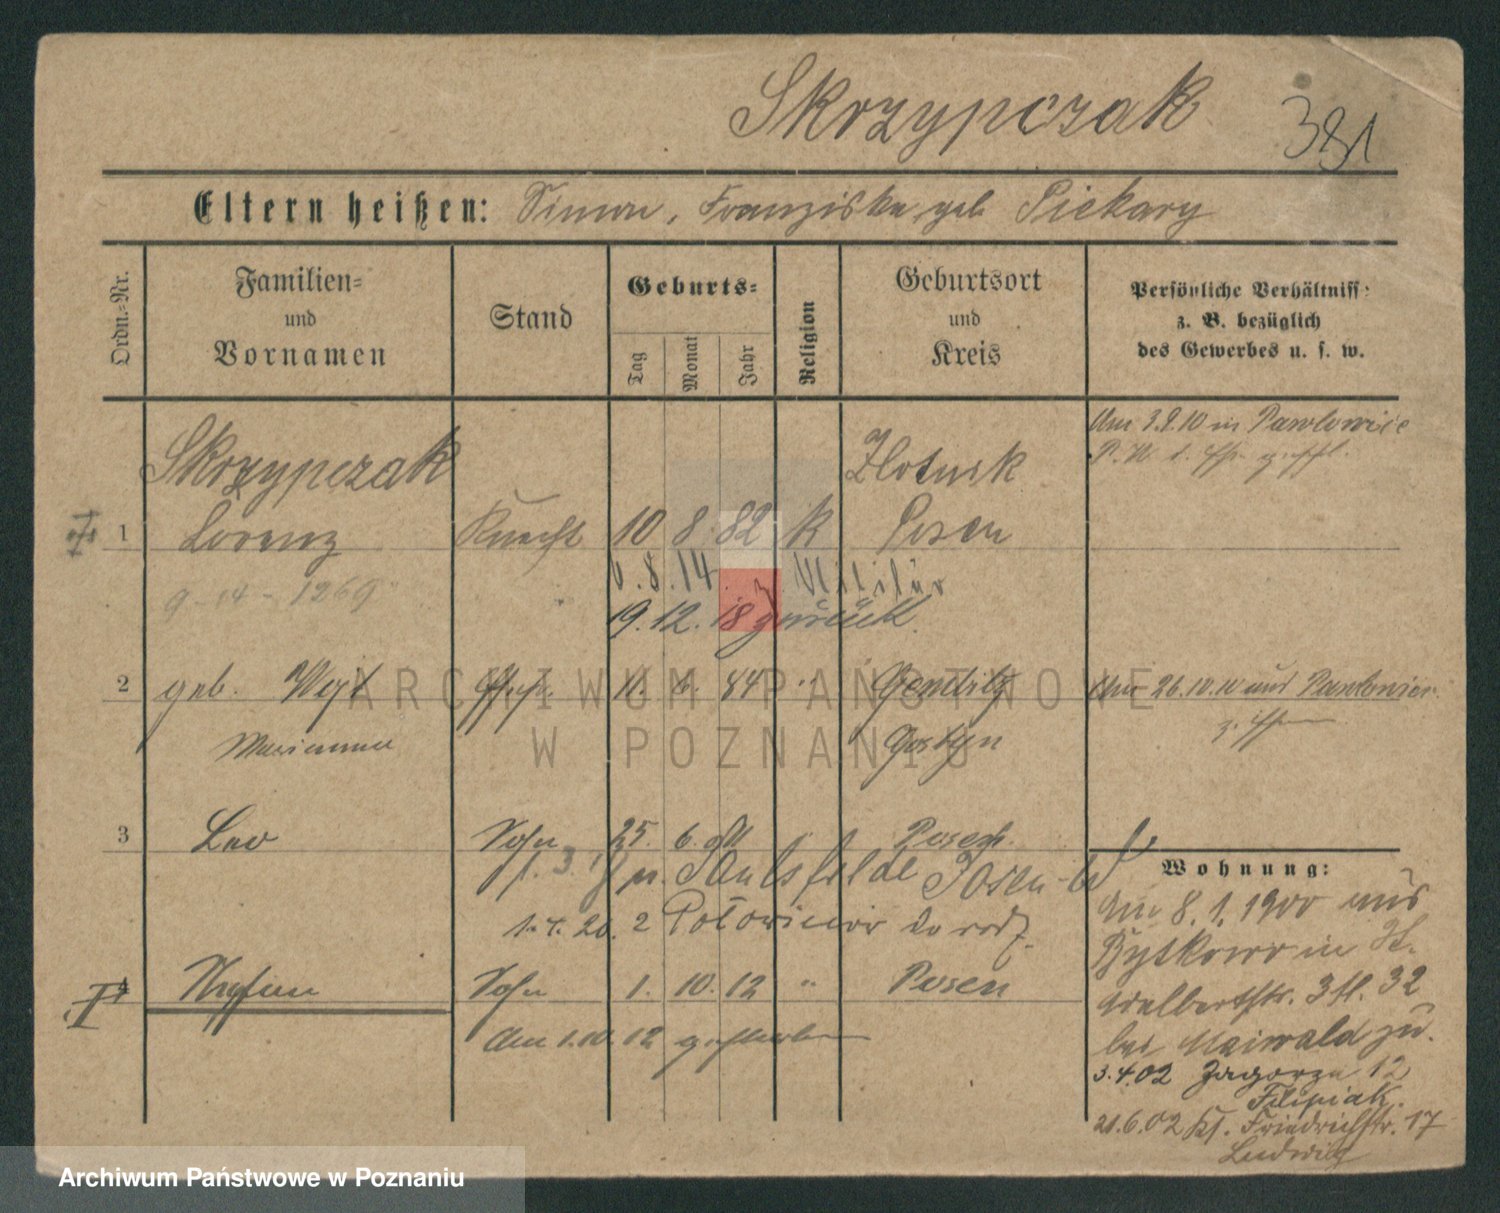 Skrzypczak 381
Eltern heißen: Simon, Franziska geb Piekary
Ordn.-Nr.
Familien=
und
Vornamen
Stand
Geburts=
Tag
Monat
Jahr
Religion
Geburtsort
und
Kreis
Persönliche Verhältniss:
z. B. bezüglich
des Gewerbes u. s. w.
Skrzypczak Zlotnik Am 3.9.10 in Pawlowice
1 Lorenz Knecht 10 8. 82 k Posen
9-14-1269
6.8.14. z. Militär
19.12.18 zurück.
2 geb. 11. 6. 84 " Gembitz Am 26.10.10 aus
Marianna Gostyn
3 Leo Sohn 25. 6. " Posen
Posen-W
1.4.20. 2
4 Sohn 1. 10. 12 " Posen
Am 1.10.12 gestorben
Wohnung:
Am 8.1.1900 aus
Sytkowo in St.
Adalbertstr. 3 fl. 32
bei Maiwald zu.
3.4.02 Zagorze 12
Filipiak.
21.6.02 Kl. Friedrichstr. 17
Ludwig
ARCHIWUM PAŃSTWOWE
W POZNANIU
Archiwum Państwowe w Poznaniu